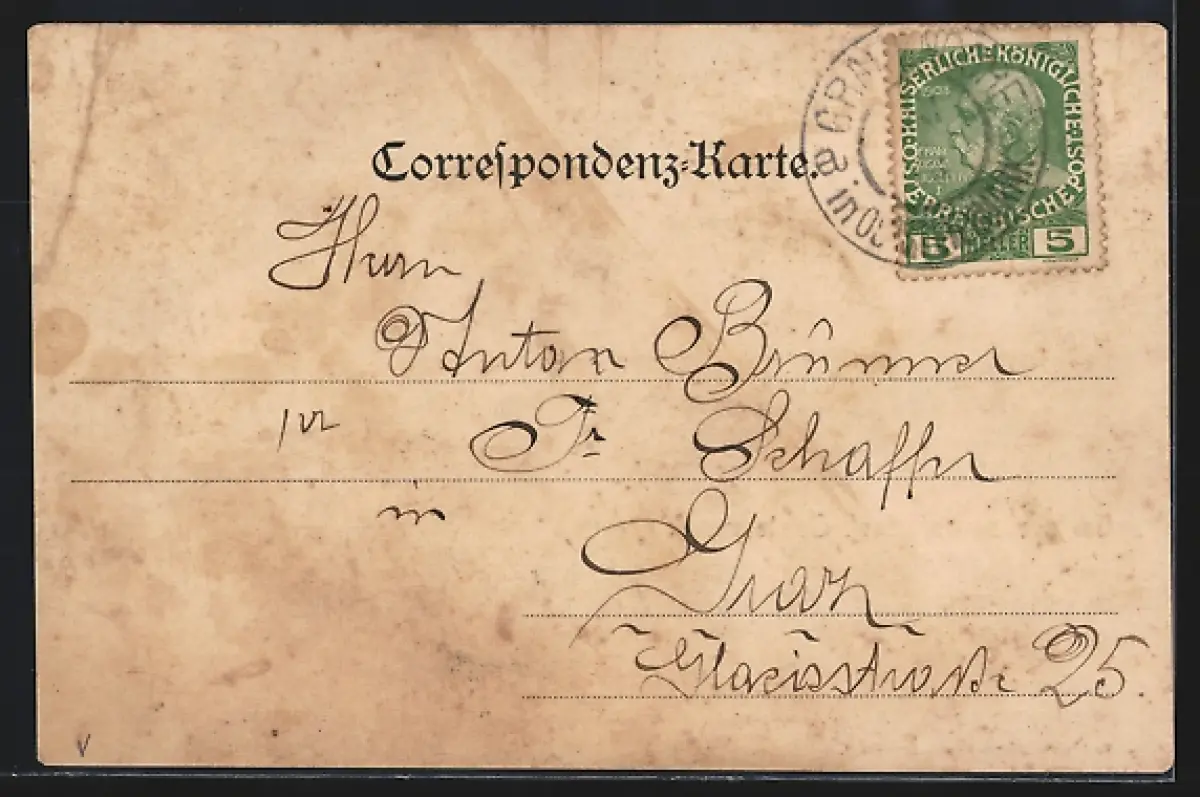 Correspondenz-Karte.
KAISERLICHE KÖNIGLICHE ÖSTERREICHISCHE
1908
5 HELLER 5
a in
Herrn
Anton Brunner
pr Fr Schaffer
in
Graz
Glacisstraße 25.